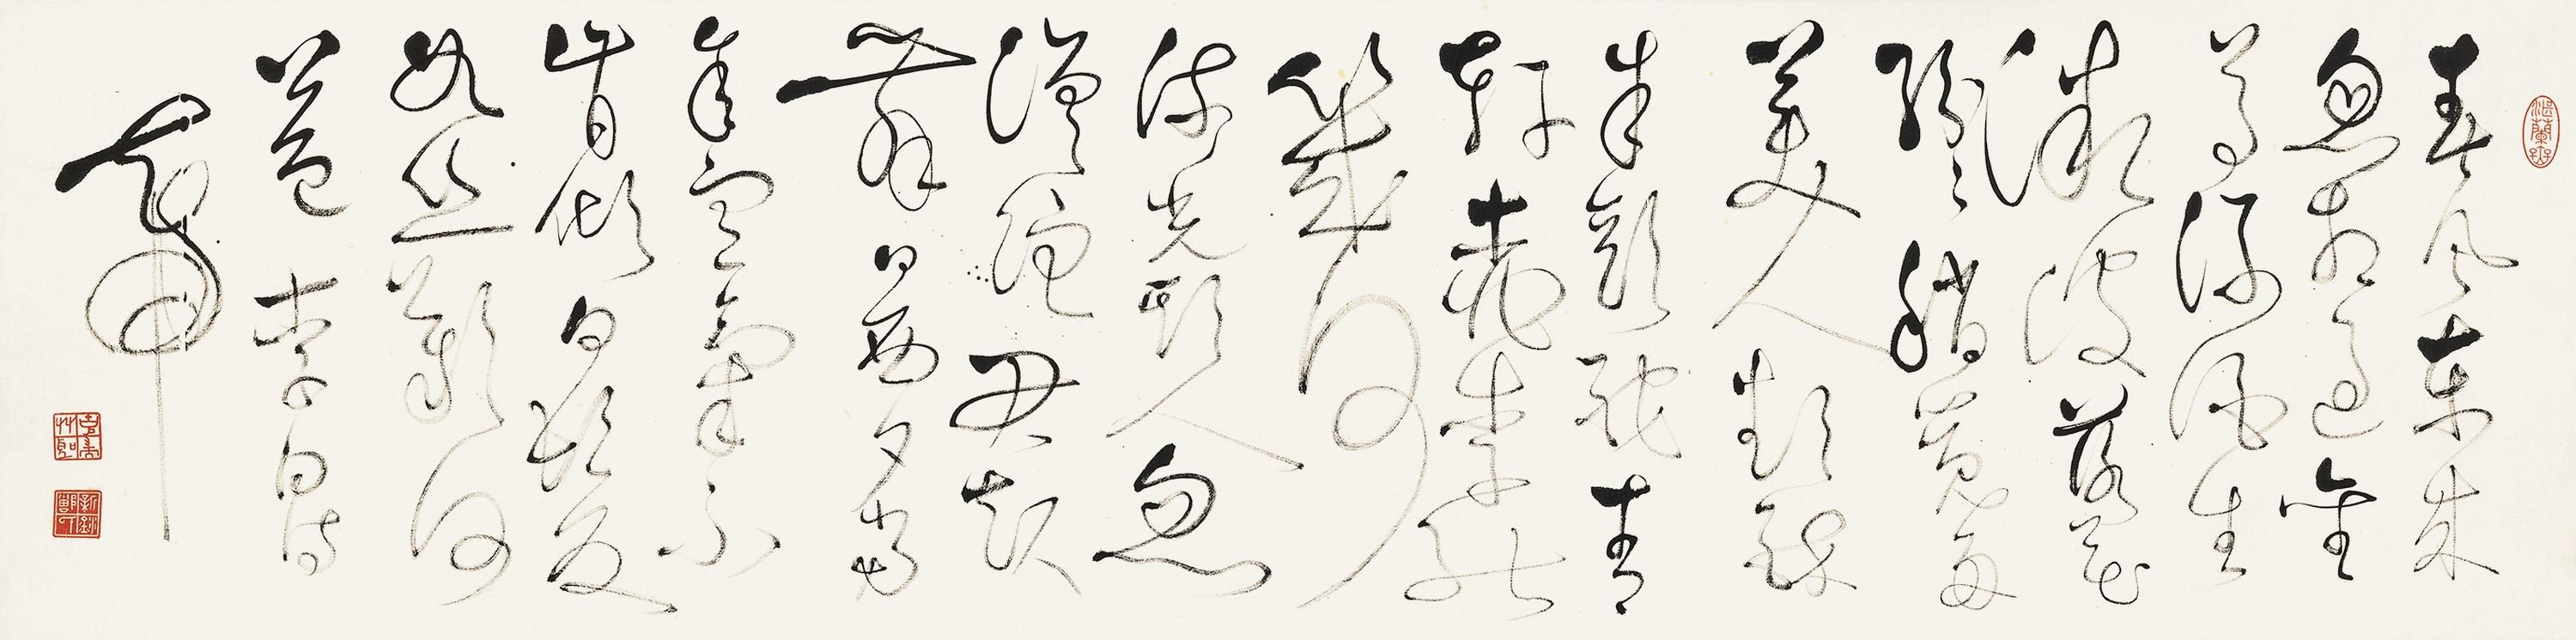 春風東來
忽相過金
尊淥酒生
微波落花
紛紛稍覺多
美人欲醉
朱顏酡青
軒桃李能
幾何
流光欺人忽
蹉跎君起
舞日西夕當
年意氣不
肯傾白髮
如絲歎何
益 李白詩